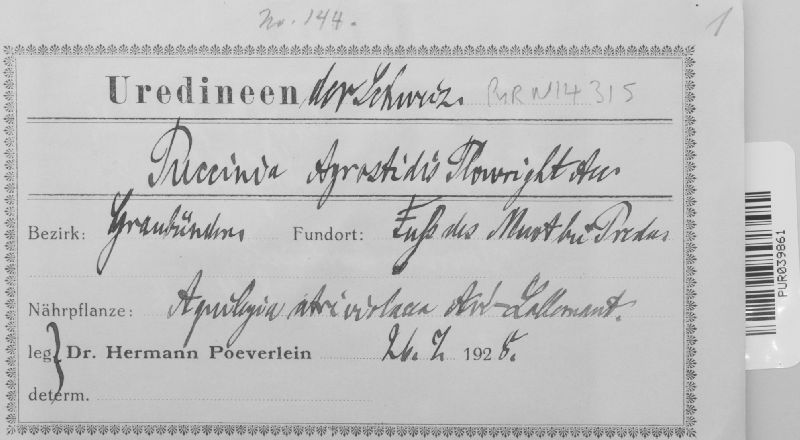 No. 144.
1
Uredineen der Schweiz.
PUR N14315
Puccinia Agrostidis Plowright
Bezirk: Graubünden. Fundort: Fuß des Muot bei Preda.
Nährpflanze: Aquilegia atriviolacea Avé-Lallemant.
leg. Dr. Hermann Poeverlein 26. 7. 1928.
determ.
PUR039861